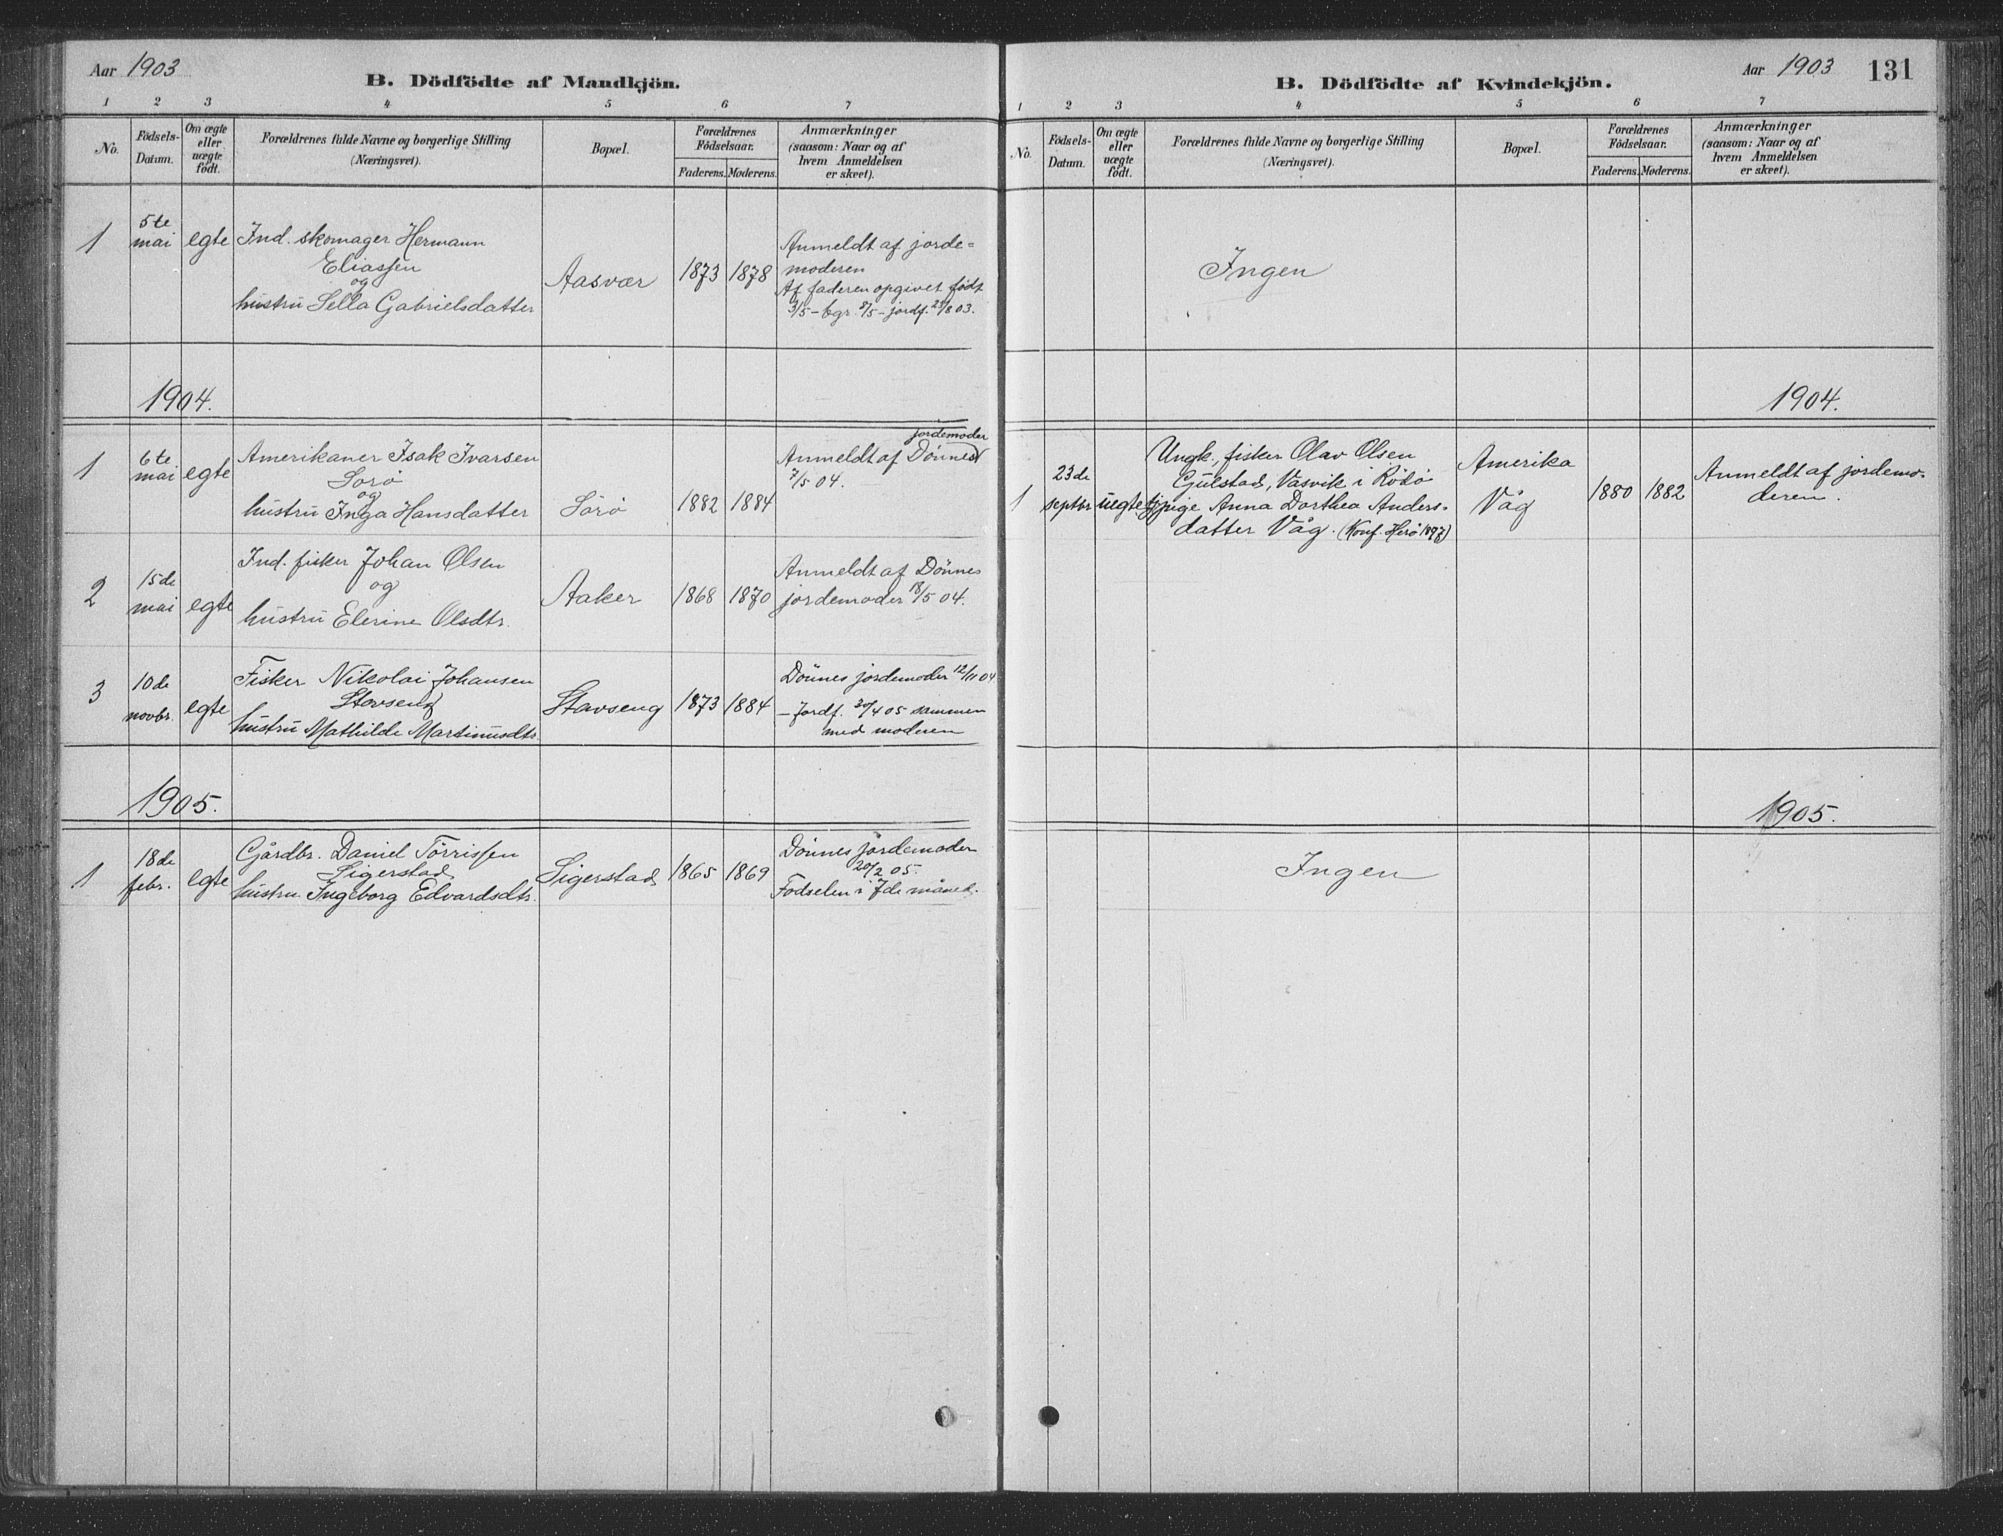 Aar 1903
B. Dödfödte af Mandkjön.
1 2 3 4 5 6 7
No.
Födsels-
Datum.
Om ægte
eller
uægte
födt.
Forældrenes fulde Navne og borgerlige Stilling
(Næringsvei).
Bopæl.
Forældrenes
Födselsaar.
Faderens. Moderens.
Anmærkninger
(saasom: Naar og af
hvem Anmeldelsen
er skeet).
1
5te
mai
egte
Ind. skomager Hermann
Eliassen
og
hustru Sella Gabrielsdatter
Aasvær
1873 1878
Anmeldt af jorde=
moderen
Af faderen opgivet født
3/5 – bgr. 8/5 – jordf. 23/8 03.
1904.
1
6te
mai
egte
Amerikaner Isak Ivarsen
Sørø
og
hustru Inga Hansdatter
Sörö
1882 1884
jordemoder
Anmeldt af Dönnes
7/5 04.
2
15de
mai
egte
Ind. fisker Johan Olsen
og
hustru Elerine Olsdtr.
Aaker
1868 1870
Anmeldt af Dönnes
jordemoder 18/5 04.
3
10de
novbr.
egte
Fisker Nikolai Johansen
Stavseng
hustru Mathilde Martinusdtr.
Stavseng
1873 1884
Dönnes jordemoder 12/11 04
– Jordf. 20/4 05 sammen
med moderen
1905.
1
18de
febr.
egte
Gårdbr. Daniel Törrissen
Sigerstad
hustru Ingeborg Edvardsdtr.
Sigerstad
1865 1869
Dönnes jordemoder
20/2 05.
Födselen i 7de måned.
Aar 1903 131
B. Dödfödte af Kvindekjön.
1 2 3 4 5 6 7
No.
Födsels-
Datum.
Om ægte
eller
uægte
födt.
Forældrenes fulde Navne og borgerlige Stilling
(Næringsvei).
Bopæl.
Forældrenes
Födselsaar.
Faderens. Moderens.
Anmærkninger
(saasom: Naar og af
hvem Anmeldelsen
er skeet).
Ingen
1904.
1
23de
septbr.
uegte
Ungk., fisker Olav Olsen
Gulstad, Vasvik i Rödö
tjpige Anna Dorthea Anders-
datter Våg. (Konf. Herö 1897)
Amerika
Våg
1880 1882
Anmeldt af jordemo-
deren.
1905.
Ingen